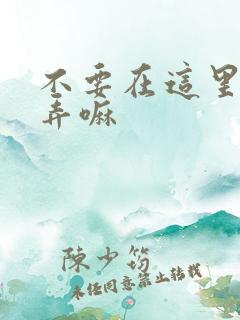 不要在這里
弄嘛
陳少筠
未經同意禁止轉載